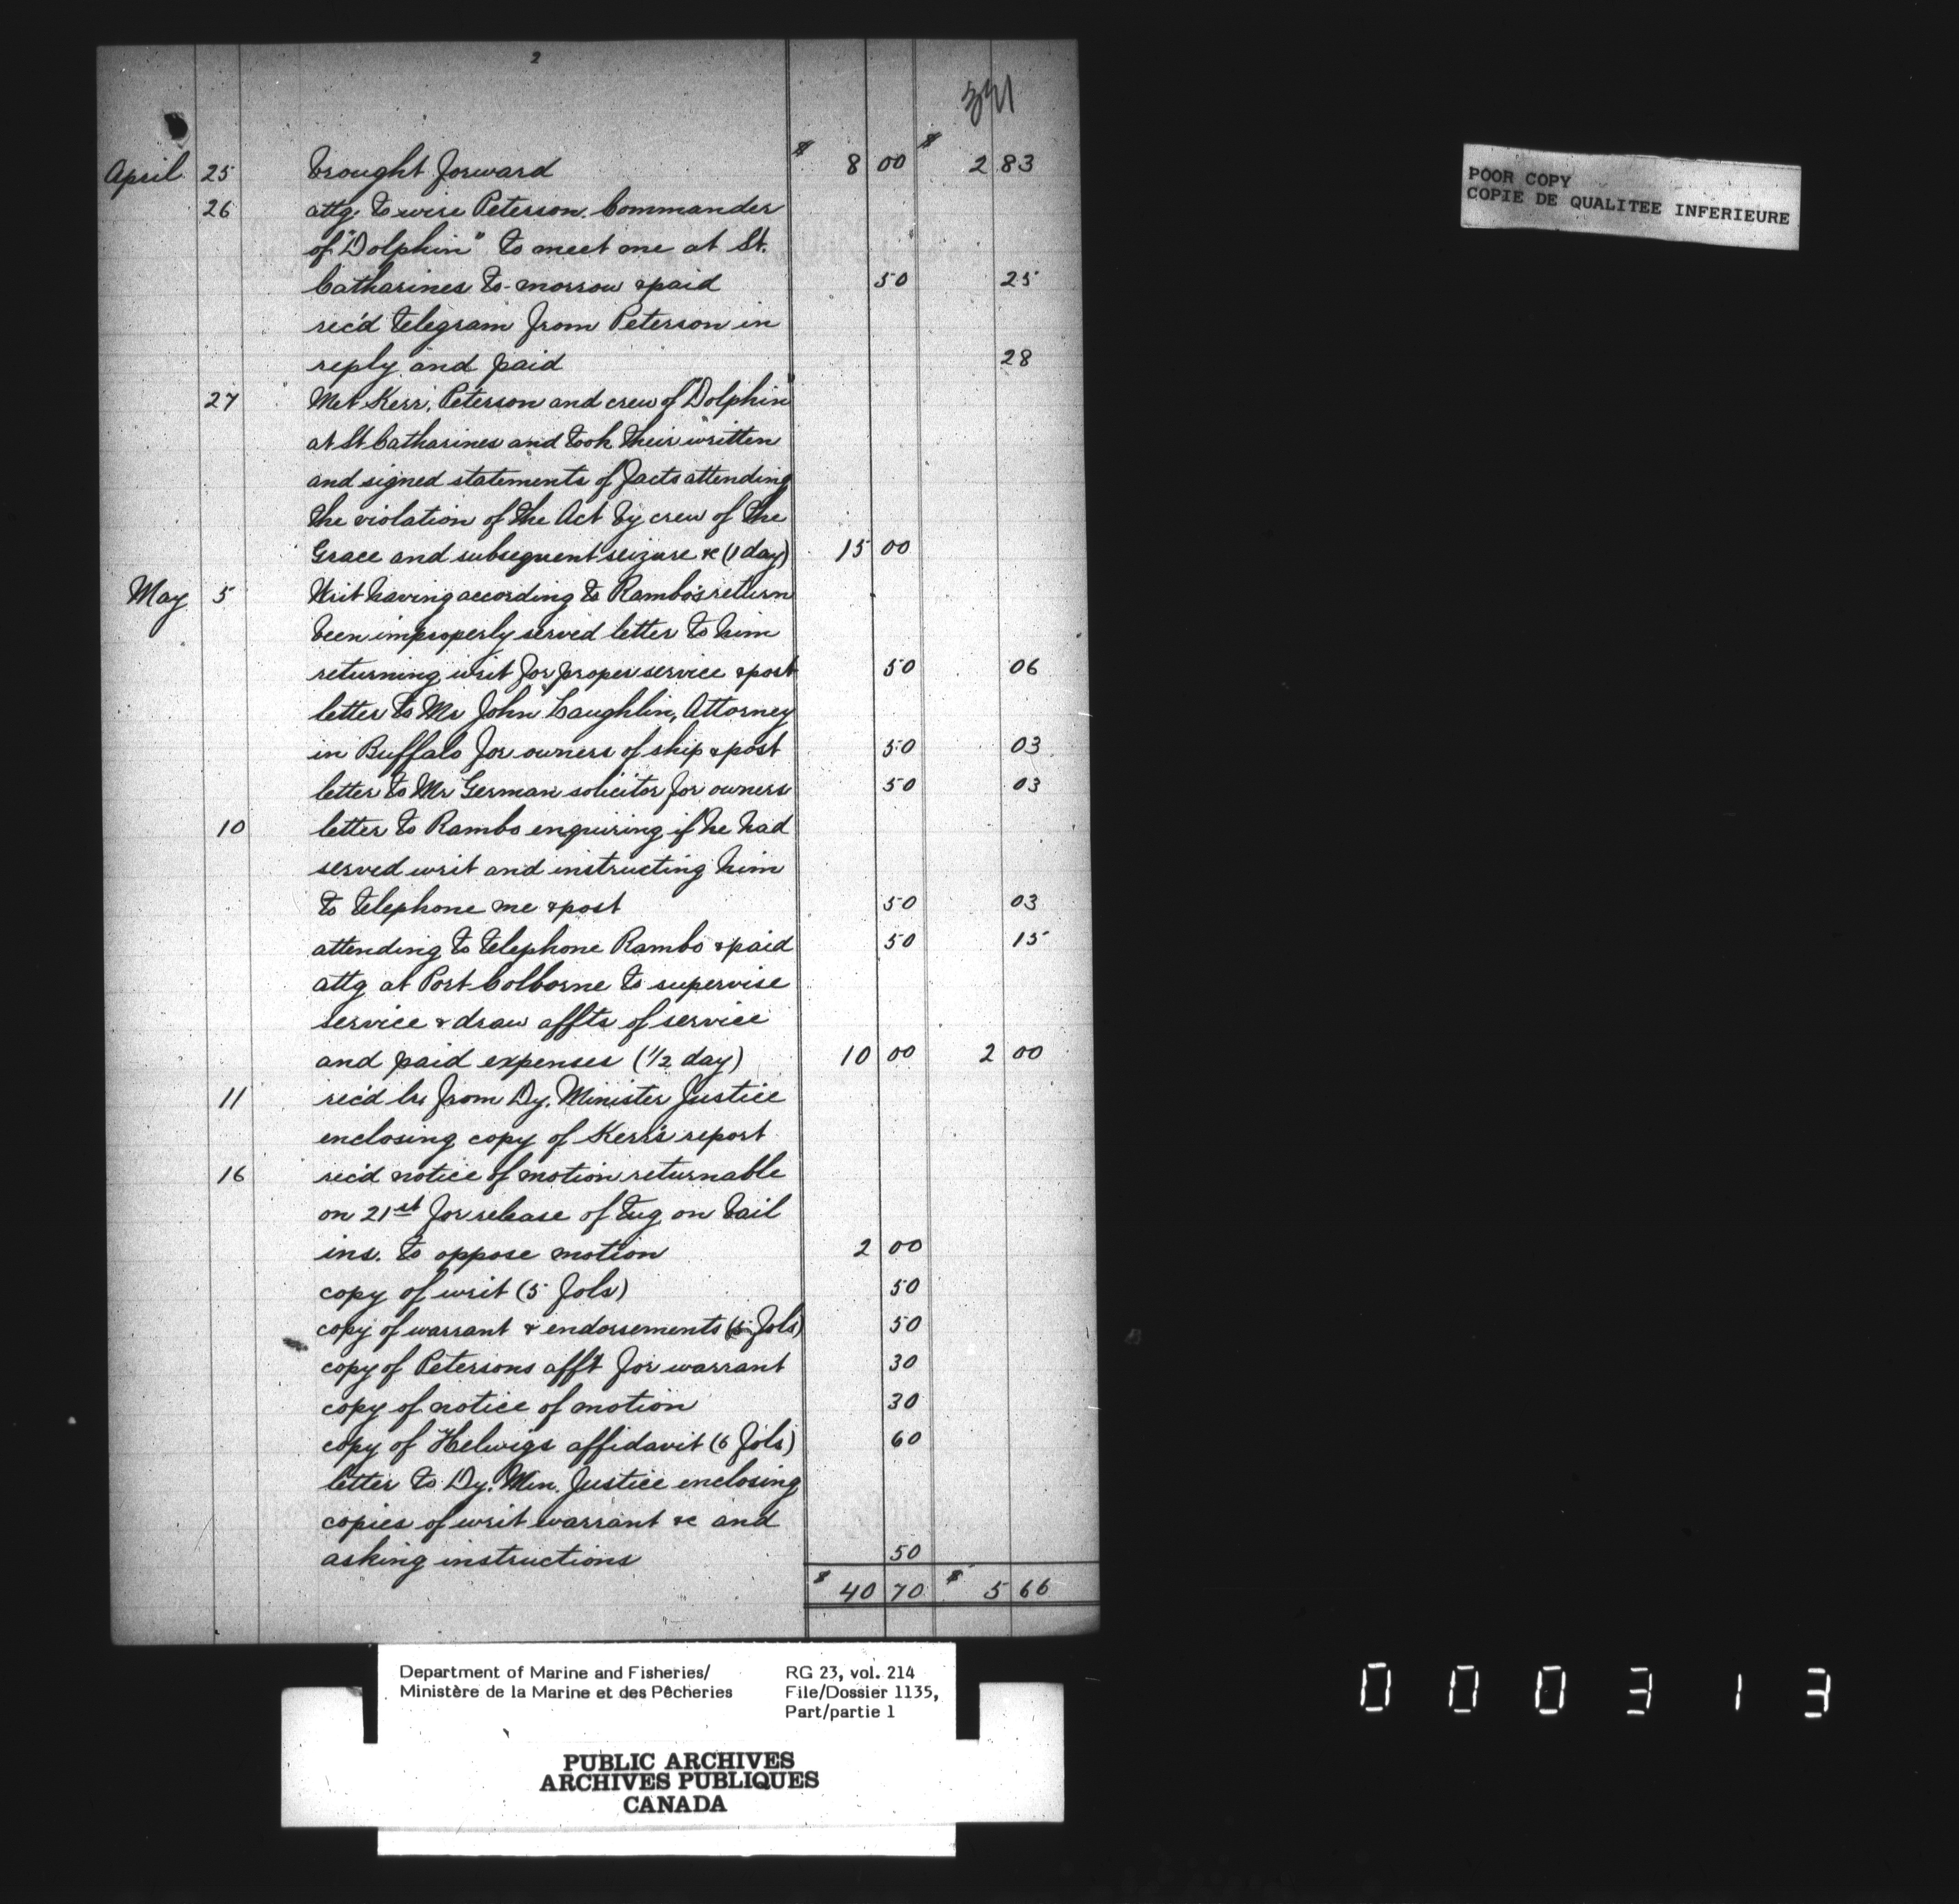 2
April 25 brought forward $ 8 00 $ 2 83
26 attg. to wire Peterson, Commander
of "Dolphin" to meet me at St.
Catharines to-morrow & paid 50 25
rec'd telegram from Peterson in
reply and paid 28
27 Met Kerr, Peterson and crew of "Dolphin"
at St Catharines and took their written
and signed statements of facts attending
the violation of the Act by crew of the
Grace and subsequent seizure &c (1 day) 15 00
May 5 Writ having according to Rambo's return
been improperly served letter to him
returning writ for proper service & post 50 06
letter to Mr John Laughlin, Attorney
in Buffalo for owners of ship & post 50 03
letter to Mr German solicitor for owners 50 03
10 letter to Rambo enquiring if he had
served writ and instructing him
to telephone me & post 50 03
attending to telephone Rambo & paid 50 15
attg at Port Colborne to supervise
service & draw affts of service
and paid expenses (1/2 day) 10 00 2 00
11 rec'd lr from Dy. Minister Justice
enclosing copy of Kerr's report
16 rec'd notice of motion returnable
on 21st for release of tug on bail
ins. to oppose motion 2 00
copy of writ (5 fols) 50
copy of warrant & endorsements (5 fols) 50
copy of Petersons afft for warrant 30
copy of notice of motion 30
copy of Helwigs affidavit (6 fols) 60
letter to Dy. Min. Justice enclosing
copies of writ warrant &c and
asking instructions 50
$ 40 70 $ 5 66
POOR COPY
COPIE DE QUALITEE INFERIEURE
Department of Marine and Fisheries/
Ministère de la Marine et des Pêcheries
RG 23, vol. 214
File/Dossier 1135,
Part/partie 1
PUBLIC ARCHIVES
ARCHIVES PUBLIQUES
CANADA
000313